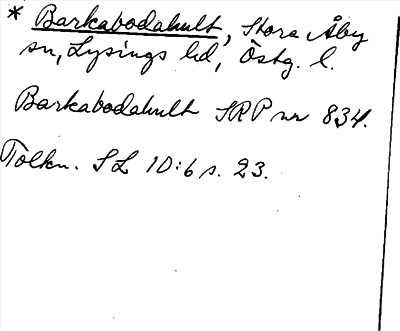 * Barkabodahult, Stora Åby
sn, Lysings hd, Östg. l.
Barkabodahult SRP nr 834.
Tolkn. SL 10:6 s. 23.